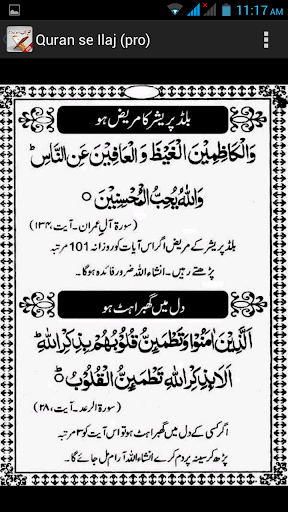 11:17 AM
Quran se Ilaj (pro)
بلڈ پریشر کا مریض ہو
وَالْكَاظِمِيْنَ الْغَيْظَ وَ الْعَافِيْنَ عَنِ النَّاسِ ط
وَاللّٰهُ يُحِبُّ الْمُحْسِنِيْنَ ○
(سورۃ آلِ عمران۔ آیت، ۱۳۴)
بلڈ پریشر کے مریض اگر اس آیات کو روزانہ 101 مرتبہ
پڑھتے رہیں۔ انشاء اللہ ضرور فائدہ ہوگا۔
دل میں گھبراہٹ ہو
اَلَّذِيْنَ اٰمَنُوْا وَتَطْمَئِنُّ قُلُوْبُهُمْ بِذِكْرِ اللّٰهِ ط
اَلَا بِذِكْرِ اللّٰهِ تَطْمَئِنُّ الْقُلُوْبُ ط ○
(سورۃ الرعد۔ آیت، ۲۸)
اگر کسی کے دل میں گھبراہٹ ہو تو اس آیت کو ۳ مرتبہ
پڑھ کر سینہ پر دم کرے انشاء اللہ آرام مل جائے گا۔